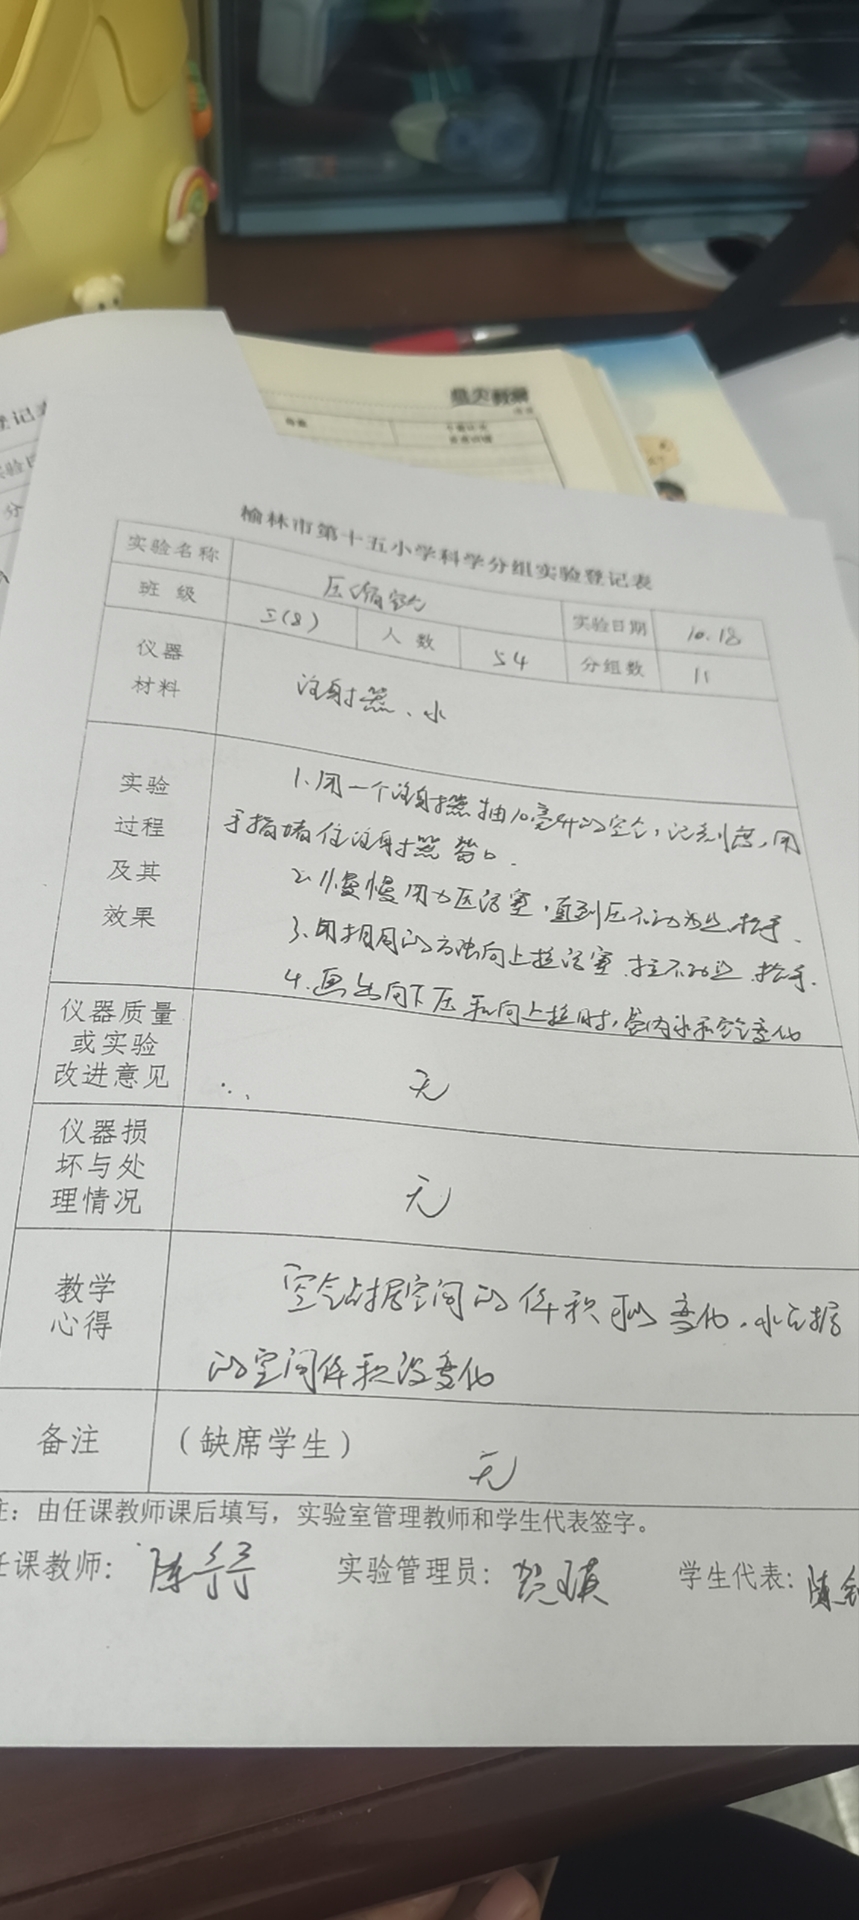 榆林市第十五小学科学分组实验登记表
实验名称 压缩空气 实验日期 10.18
班级 三(8) 人数 54 分组数 11
仪器材料 注射器、水
实验过程及其效果
1.用一个注射器抽10毫升的空气,记刻度,用
手指堵住注射器管口.
2.慢慢用力压活塞,直到压不动为止,松手.
3.用相同的方法向上拉活塞,拉不动止,松手.
4.画出向下压和向上拉时,管内水和空气变化
仪器质量或实验改进意见 无
仪器损坏与处理情况 无
教学心得
空气占据空间的体积可以变化,水占据
的空间体积没变化
备注 (缺席学生) 无
注:由任课教师课后填写,实验室管理教师和学生代表签字。
任课教师: 陈 实验管理员: 贺瑛 学生代表: 陈